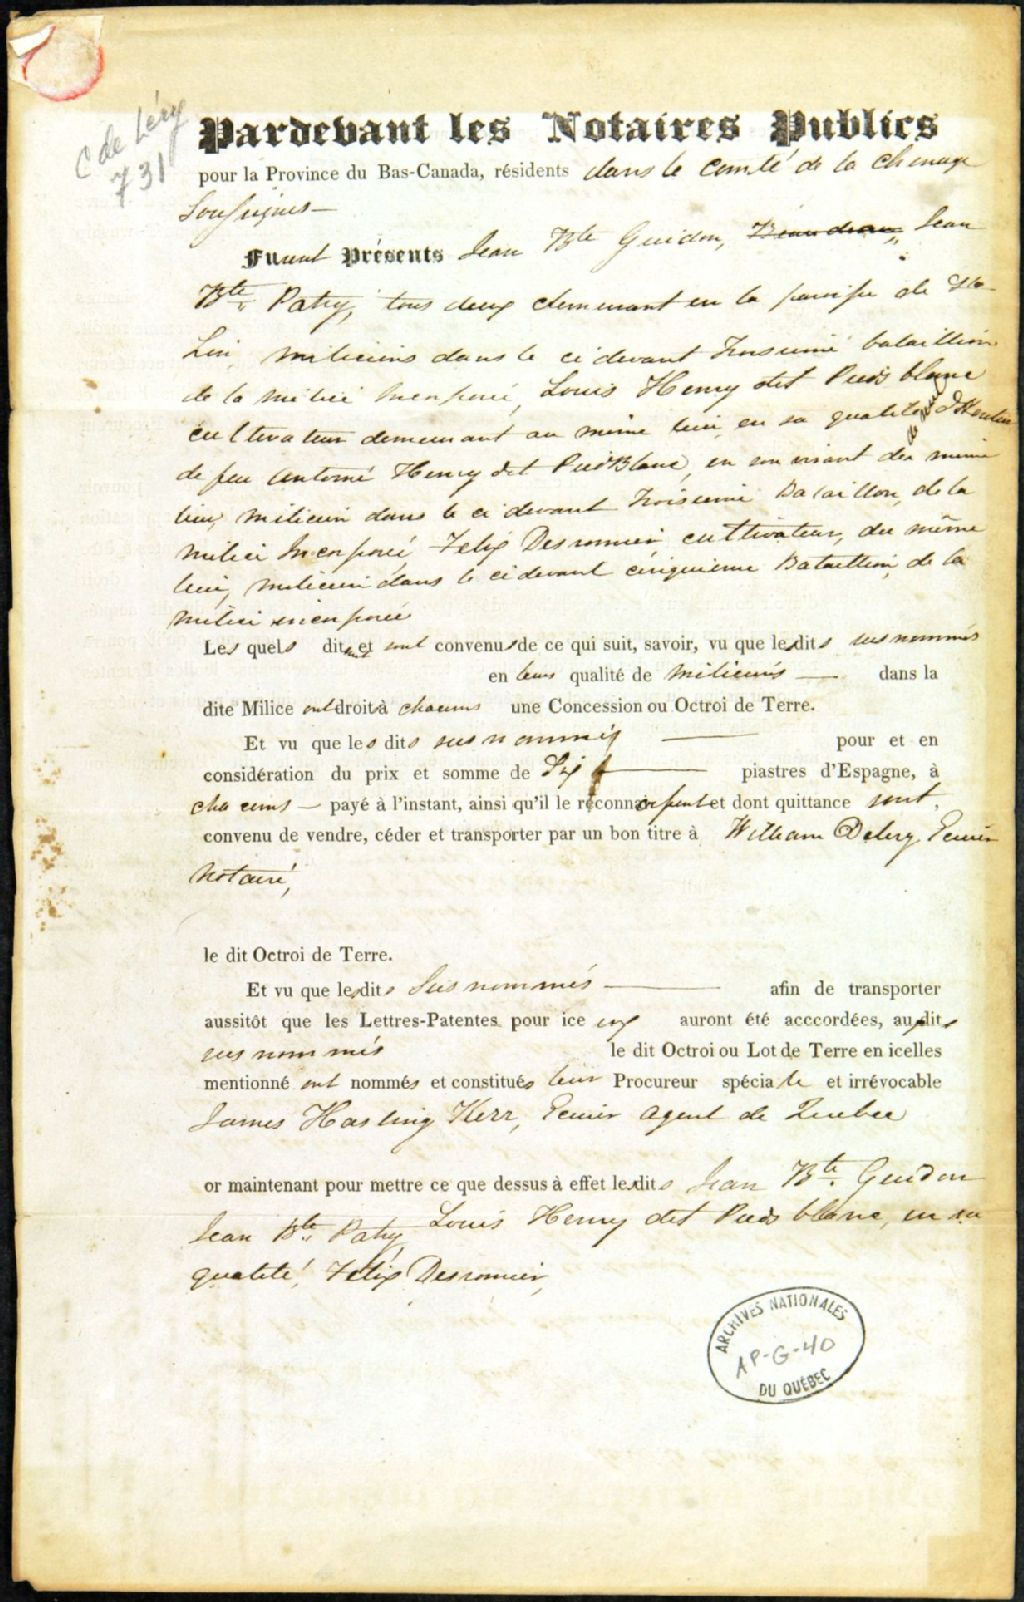 C de Léry
731
Pardevant les Notaires Publics
pour la Province du Bas-Canada, résidents dans le Comté de la Chenaye
Soussignés —
Furent Présents Jean Bte Guidon, Jean
Bte Patry, tous deux demeurant en la paroisse de St
Lin, miliciens dans le ci devant Troisieme bataillion
de la milice incorporée, Louis Henry dit Pieds blanc
cultivateur demeurant au même lieu, en sa qualité d'Heritier
de feu Antoine Henry dit PiedBlanc, en son vivant du même
lieu, milicien dans le ci devant Troisieme Bataillon, de la
milice Incorporée Felix Desromier cultivateur, du même
lieu, milicien dans le ci devant cinquieme Bataillion, de la
milice incorporée
Les quels dit et ont convenus de ce qui suit, savoir, vu que les dits sus nommés
en leurs qualité de miliciens — dans la
dite Milice ont droit à chacuns une Concession ou Octroi de Terre.
Et vu que les dits sus nommés — pour et en
considération du prix et somme de Six — piastres d'Espagne, à
chacuns — payé à l'instant, ainsi qu'il le reconnoissent et dont quittance sont,
convenu de vendre, céder et transporter par un bon titre à William Delery Ecuier
Notaire,
le dit Octroi de Terre.
Et vu que les dits Sus nommés — afin de transporter
aussitôt que les Lettres-Patentes pour ice eux auront été acccordées, aux dits
sus nommés le dit Octroi ou Lot de Terre en icelles
mentionné ont nommés et constitués leur Procureur spécial et irrévocable
James Hasting Kerr, Ecuier Agent de Quebec
or maintenant pour mettre ce que dessus à effet les dits Jean Bte. Guidon
Jean Bte. Patry Louis Henry dit Pieds blanc, en sa
qualité, Felix Desromier,
ARCHIVES NATIONALES
AP-G-40
DU QUÉBEC